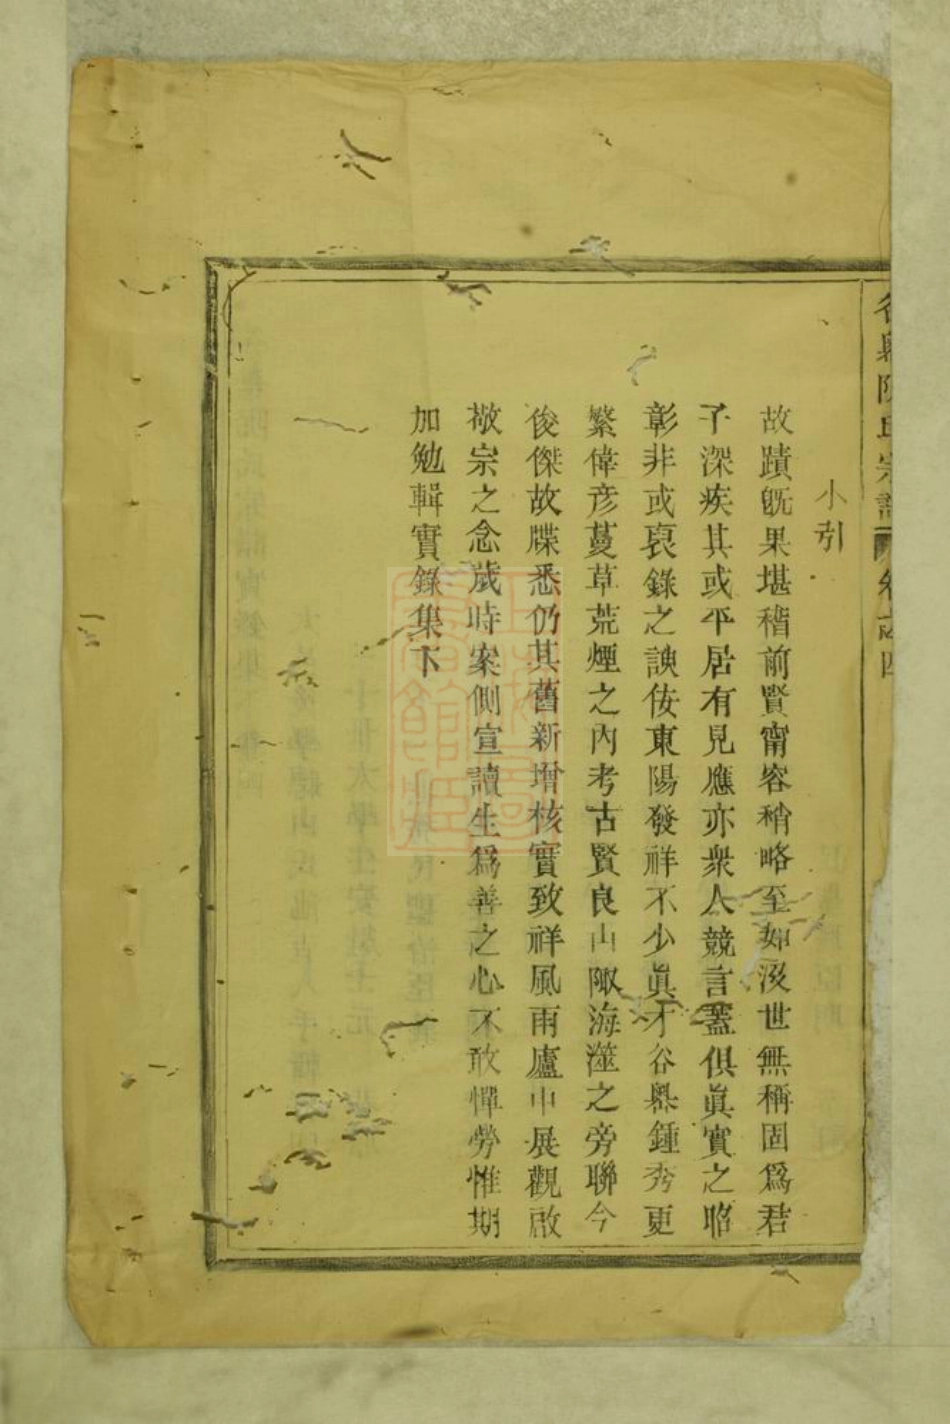 小引
故蹟旣果堪稽前賢甯容稍略至如沒世無稱固爲君
子深疾其或平居有見應亦衆人競言蓋俱眞實之昭
彰非或裒錄之諛佞東陽發祥不少眞才谷㠗鍾秀更
繁偉彦蔓草荒煙之內考古賢良山陬海澨之旁聯今
俊傑故牒悉仍其舊新增核實致祥風雨廬中展觀啟
敬宗之念歲時案側宣讀生爲善之心不敢憚勞惟期
加勉輯實錄集下